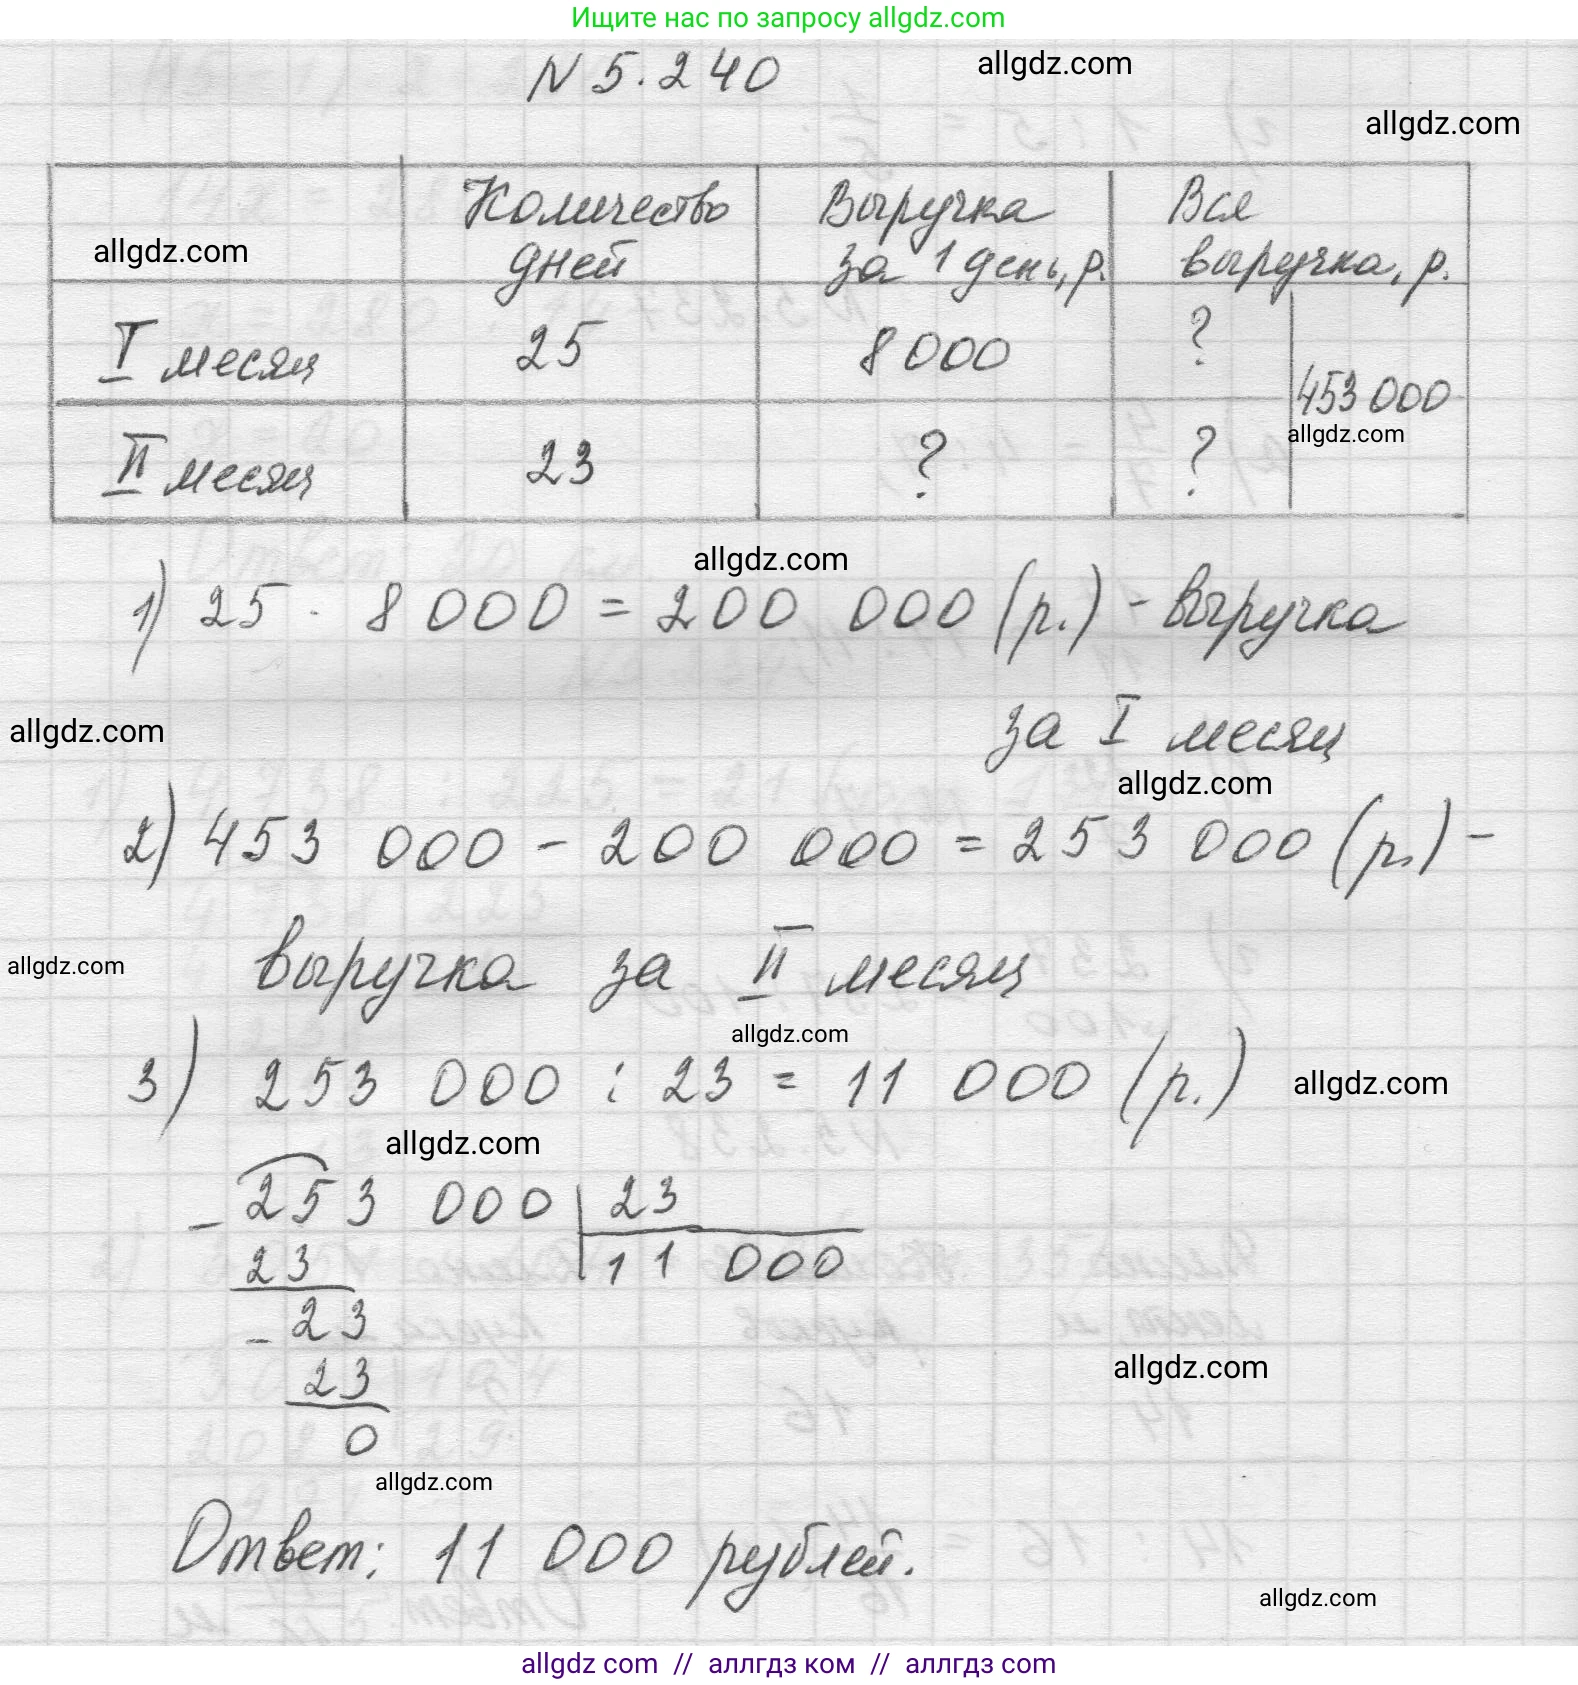 Ищите нас по запросу allgdz.com
N 5.240
allgdz.com
allgdz.com
Количество дней
Выручка за 1 день, р.
Вся выручка, р.
allgdz.com
I месяц 25 8 000 ?
453 000
allgdz.com
II месяц 23 ? ?
allgdz.com
1) 25 · 8 000 = 200 000 (р.) - выручка
за I месяц
allgdz.com
allgdz.com
2) 453 000 - 200 000 = 253 000 (р.) -
выручка за II месяц
allgdz.com
allgdz.com
3) 253 000 : 23 = 11 000 (р.)
allgdz.com
allgdz.com
- 253 000 | 23
23 11 000
- 23
23
allgdz.com
0
allgdz.com
Ответ: 11 000 рублей.
allgdz.com
allgdz com // аллгдз ком // аллгдз com